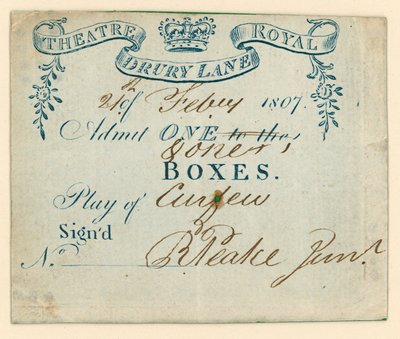 THEATRE ROYAL
DRURY LANE
21th of Febry 1807.
Admit ONE to the
BOXES.
Play of Curfew
Sign'd
R Peake Junr.
No.